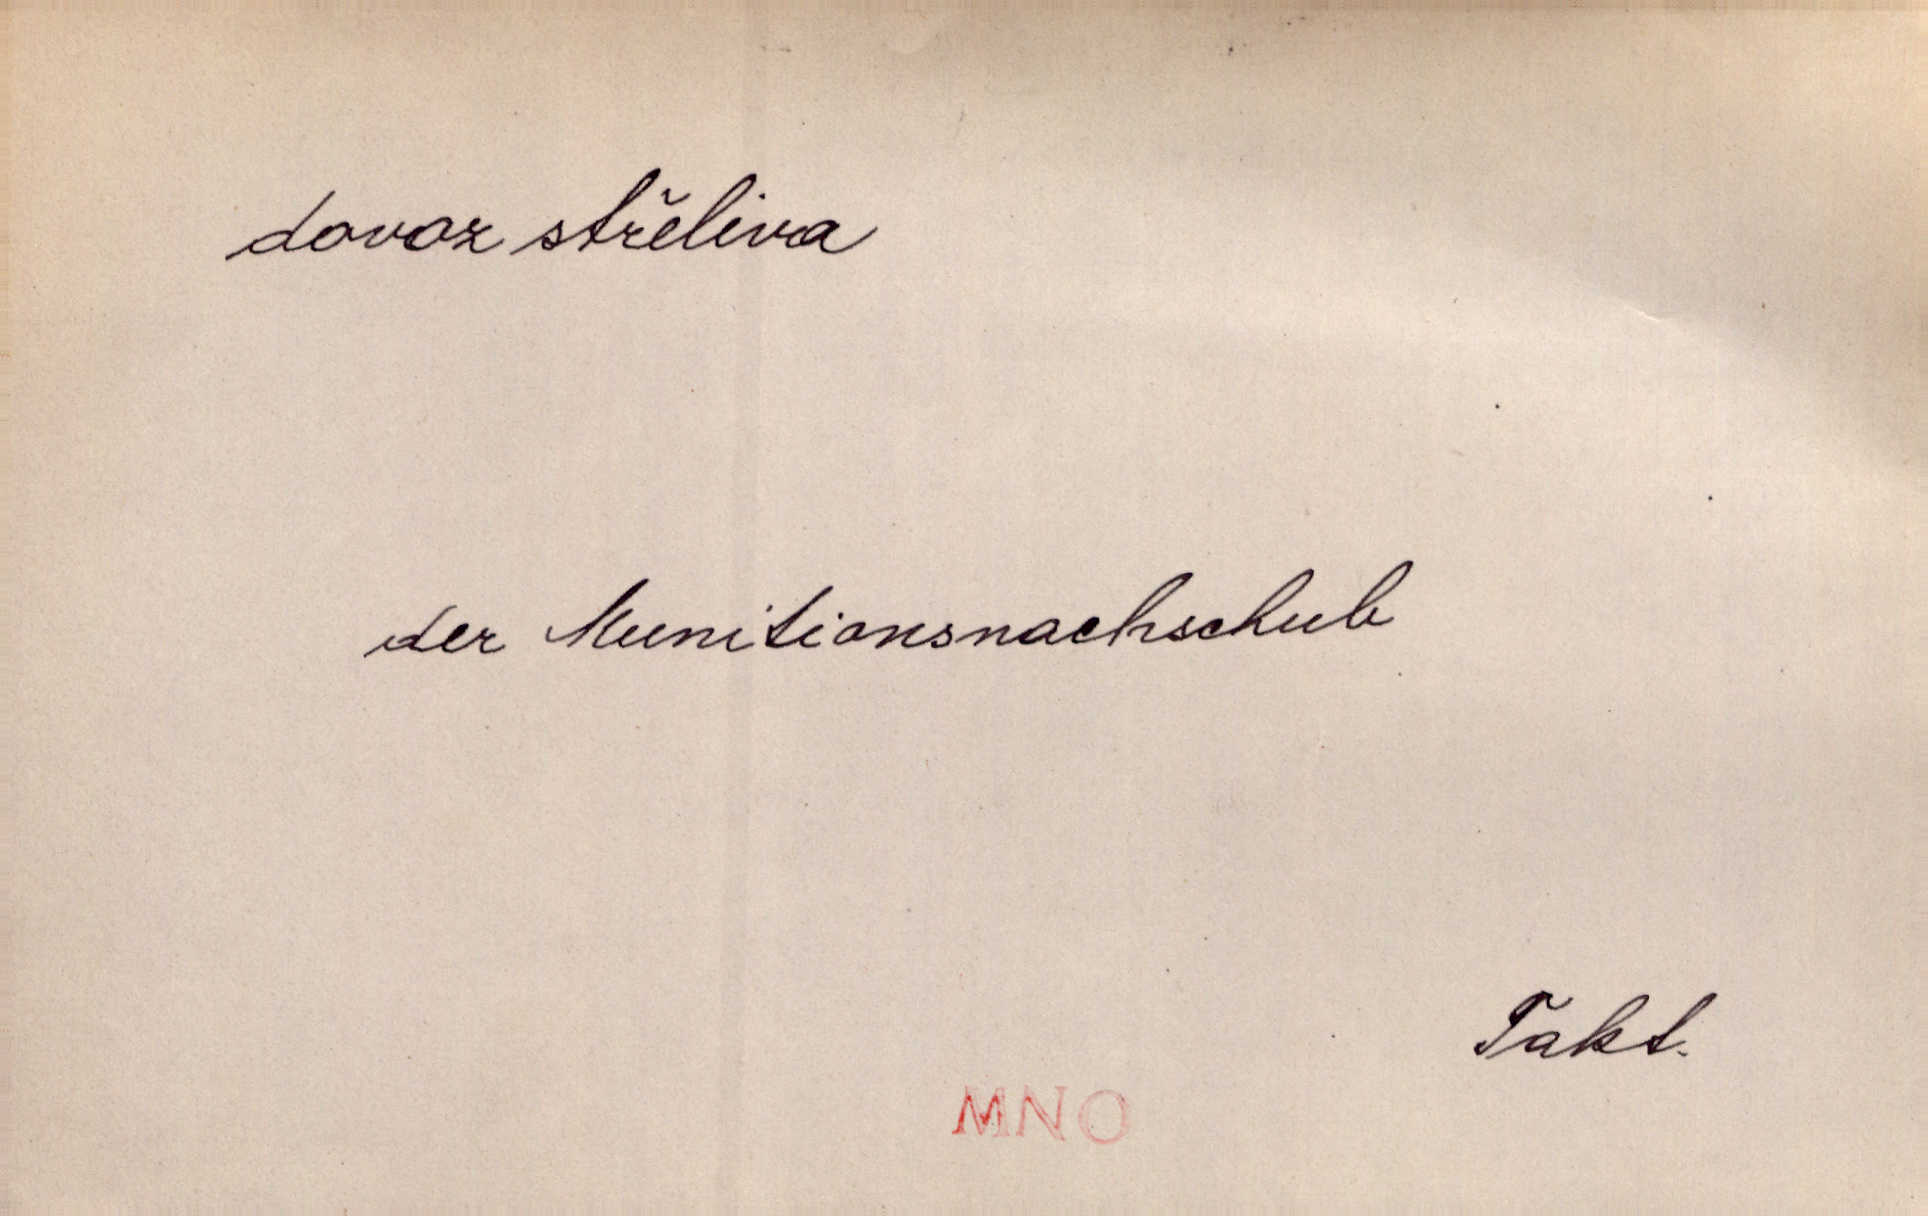 dovoz střeliva
der Munitionsnachschub
Takt.
MNO